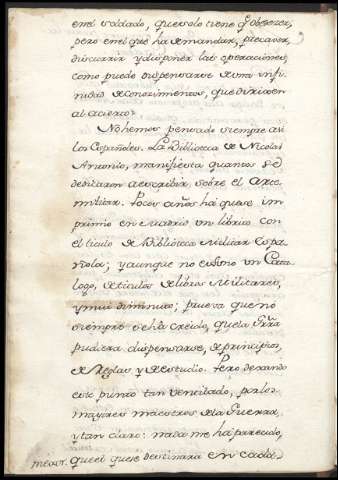 en el soldado, que solo tiene q.e obedecer,
pero en el que ha de mandar, precaver,
discurrir y disponer las operaciones,
como puede dispensarse de una infi-
nidad de conocimientos, que dirixen
al acierto?
No hemos pensado siempre asi
los Españoles. La Biblioteca de Nicolas
Antonio, manifiesta quantos se de
dicaron a escribir, sobre el Arte
militar. Pocos años há que se im
primio en Madrid un librito con
el titulo de Biblioteca Militar Espa
ñola; y aunque no es sino un Cata
logo, de titulos de libros Militares,
y mui diminuto; prueva que no
siempre se há creido, que la Grrã
pudiera dispensarse, de principios,
de Reglas y de estudio. Pero dexando
este punto tan ventilado, por los
mayores maestros de la Guerra,
y tan claro: nada me há parecido,
que el que se destinara en cada